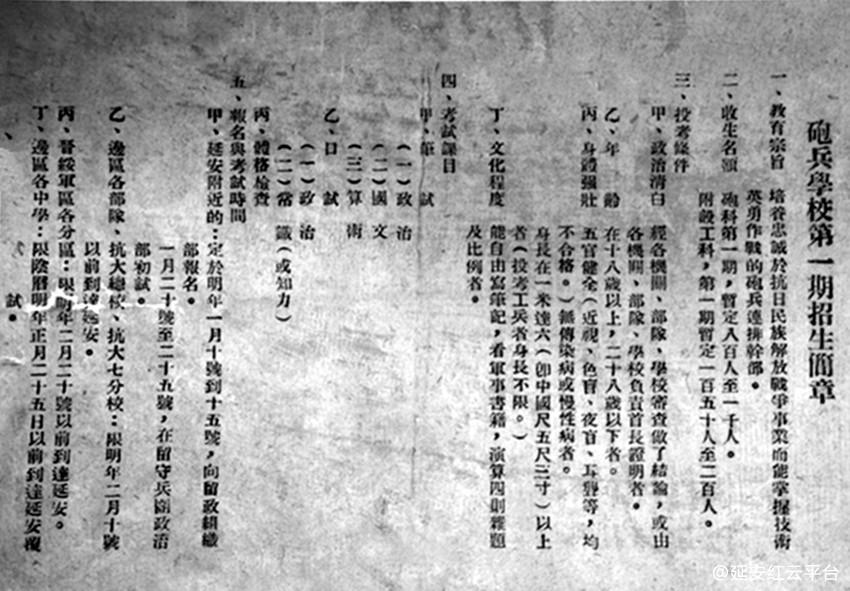 砲兵學校第一期招生簡章
一、教育宗旨　培養忠誠於抗日民族解放戰爭事業而能掌握技術
英勇作戰的砲兵連排幹部。
二、收生名額　砲科第一期，暫定八百人至一千人。
附設工科，第一期暫定一百五十人至二百人。
三、投考條件
甲、政治清白　經各機關、部隊、學校審查做了結論，或由
各機關、部隊、學校負責首長證明者。
乙、年齡　在十八歲以上，二十八歲以下者。
丙、身體强壯　五官健全（近視、色盲、夜盲、耳聾等，均
不合格。）無傳染病或慢性病者。
身長在一米達六（卽中國尺五尺三寸）以上
者（投考工兵者身長不限。）
丁、文化程度　能自由寫筆記，看軍事書籍，演算四則雜題
及比例者。
四、考試課目
甲、筆試
（一）政治
（二）國文
（三）算術
乙、口試
（一）政治
（二）常識（或知力）
丙、體格檢查
五、報名與考試時間
甲、延安附近的：定於明年一月十號到十五號，向留政組織
部報名。
一月二十號至二十五號，在留守兵團政治
部初試。
乙、邊區各部隊、抗大總校、抗大七分校：限明年二月十號
以前到達延安。
丙、晉綏軍區各分區：限明年二月二十號以前到達延安。
丁、邊區各中學：限陰曆明年正月二十五日以前到達延安覆
試。
、　試。
@延安红云平台